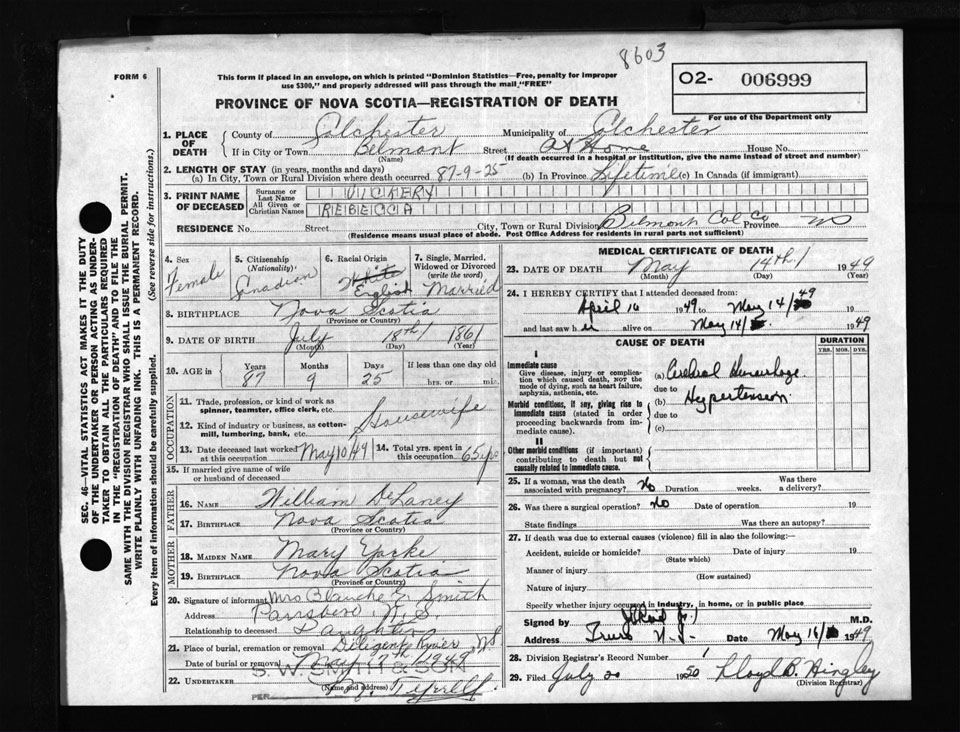 8603
FORM 6
This form if placed in an envelope, on which is printed "Dominion Statistics—Free, penalty for improper
use $300," and properly addressed will pass through the mail, "FREE"
O2- 006999
For use of the Department only
PROVINCE OF NOVA SCOTIA—REGISTRATION OF DEATH
1. PLACE OF DEATH
County of Colchester Municipality of Colchester
If in City or Town Belmont Street At Home House No.
(Name) (If death occurred in a hospital or institution, give the name instead of street and number)
2. LENGTH OF STAY (in years, months and days)
(a) In City, Town or Rural Division where death occurred 87-9-25 (b) In Province Lifetime (c) In Canada (if immigrant)
3. PRINT NAME OF DECEASED
Surname or Last Name VICKERY
All Given or Christian Names REBECCA
RESIDENCE No. Street City, Town or Rural Division Belmont Col Co Province NS
(Residence means usual place of abode. Post Office Address for residents in rural parts not sufficient)
4. Sex Female
5. Citizenship (Nationality) Canadian
6. Racial Origin White English
7. Single, Married, Widowed or Divorced (write the word) Married
8. BIRTHPLACE Nova Scotia
(Province or Country)
9. DATE OF BIRTH July 18th 1861
(Month) (Day) (Year)
10. AGE in Years 87 Months 9 Days 25 If less than one day old hrs. or min.
OCCUPATION
11. Trade, profession, or kind of work as spinner, teamster, office clerk, etc. Housewife
12. Kind of industry or business, as cotton-mill, lumbering, bank, etc.
13. Date deceased last worked at this occupation May 10/49 14. Total yrs. spent in this occupation 65 yrs
15. If married give name of wife or husband of deceased
FATHER
16. NAME William DeLaney
17. BIRTHPLACE Nova Scotia
(Province or Country)
MOTHER
18. MAIDEN NAME Mary Yorke
19. BIRTHPLACE Nova Scotia
(Province or Country)
20. Signature of informant Mrs Blanche Z. Smith
Address Parrsboro N.S.
Relationship to deceased Daughter
21. Place of burial, cremation or removal Diligent River NS
Date of burial or removal May 17th 1949
22. UNDERTAKER
(Name and address)
PER
MEDICAL CERTIFICATE OF DEATH
23. DATE OF DEATH May 14th 1949
(Month) (Day) (Year)
24. I HEREBY CERTIFY that I attended deceased from:
April 16 1949 to May 14/49 19
and last saw h er alive on May 14/ 1949
CAUSE OF DEATH
DURATION
YRS. MOS. DYS.
I
Immediate cause
Give disease, injury or complication which caused death, not the mode of dying, such as heart failure, asphyxia, asthenia, etc.
(a) Cerebral Hemorrhage
due to
Morbid conditions, if any, giving rise to immediate cause (stated in order proceeding backwards from immediate cause).
(b) Hypertension
due to
(c)
II
Other morbid conditions (if important) contributing to death but not causally related to immediate cause.
25. If a woman, was the death associated with pregnancy? No Duration weeks. Was there a delivery?
26. Was there a surgical operation? No Date of operation 19
State findings Was there an autopsy?
27. If death was due to external causes (violence) fill in also the following:—
Accident, suicide or homicide? Date of injury 19
(State which)
Manner of injury
(How sustained)
Nature of injury
Specify whether injury occurred in industry, in home, or in public place
Signed by M.D.
Address Truro N.S. Date May 16 1949
28. Division Registrar's Record Number 1
29. Filed July 20 1950 Lloyd B. Hingley
(Division Registrar)
SEC. 46—VITAL STATISTICS ACT MAKES IT THE DUTY
OF THE UNDERTAKER OR PERSON ACTING AS UNDERTAKER
TO OBTAIN ALL THE PARTICULARS REQUIRED
IN THE "REGISTRATION OF DEATH" AND TO FILE THE
SAME WITH THE DIVISION REGISTRAR WHO SHALL ISSUE THE BURIAL PERMIT.
WRITE PLAINLY WITH UNFADING INK. THIS IS A PERMANENT RECORD.
Every item of information should be carefully supplied. (See reverse side for instructions.)